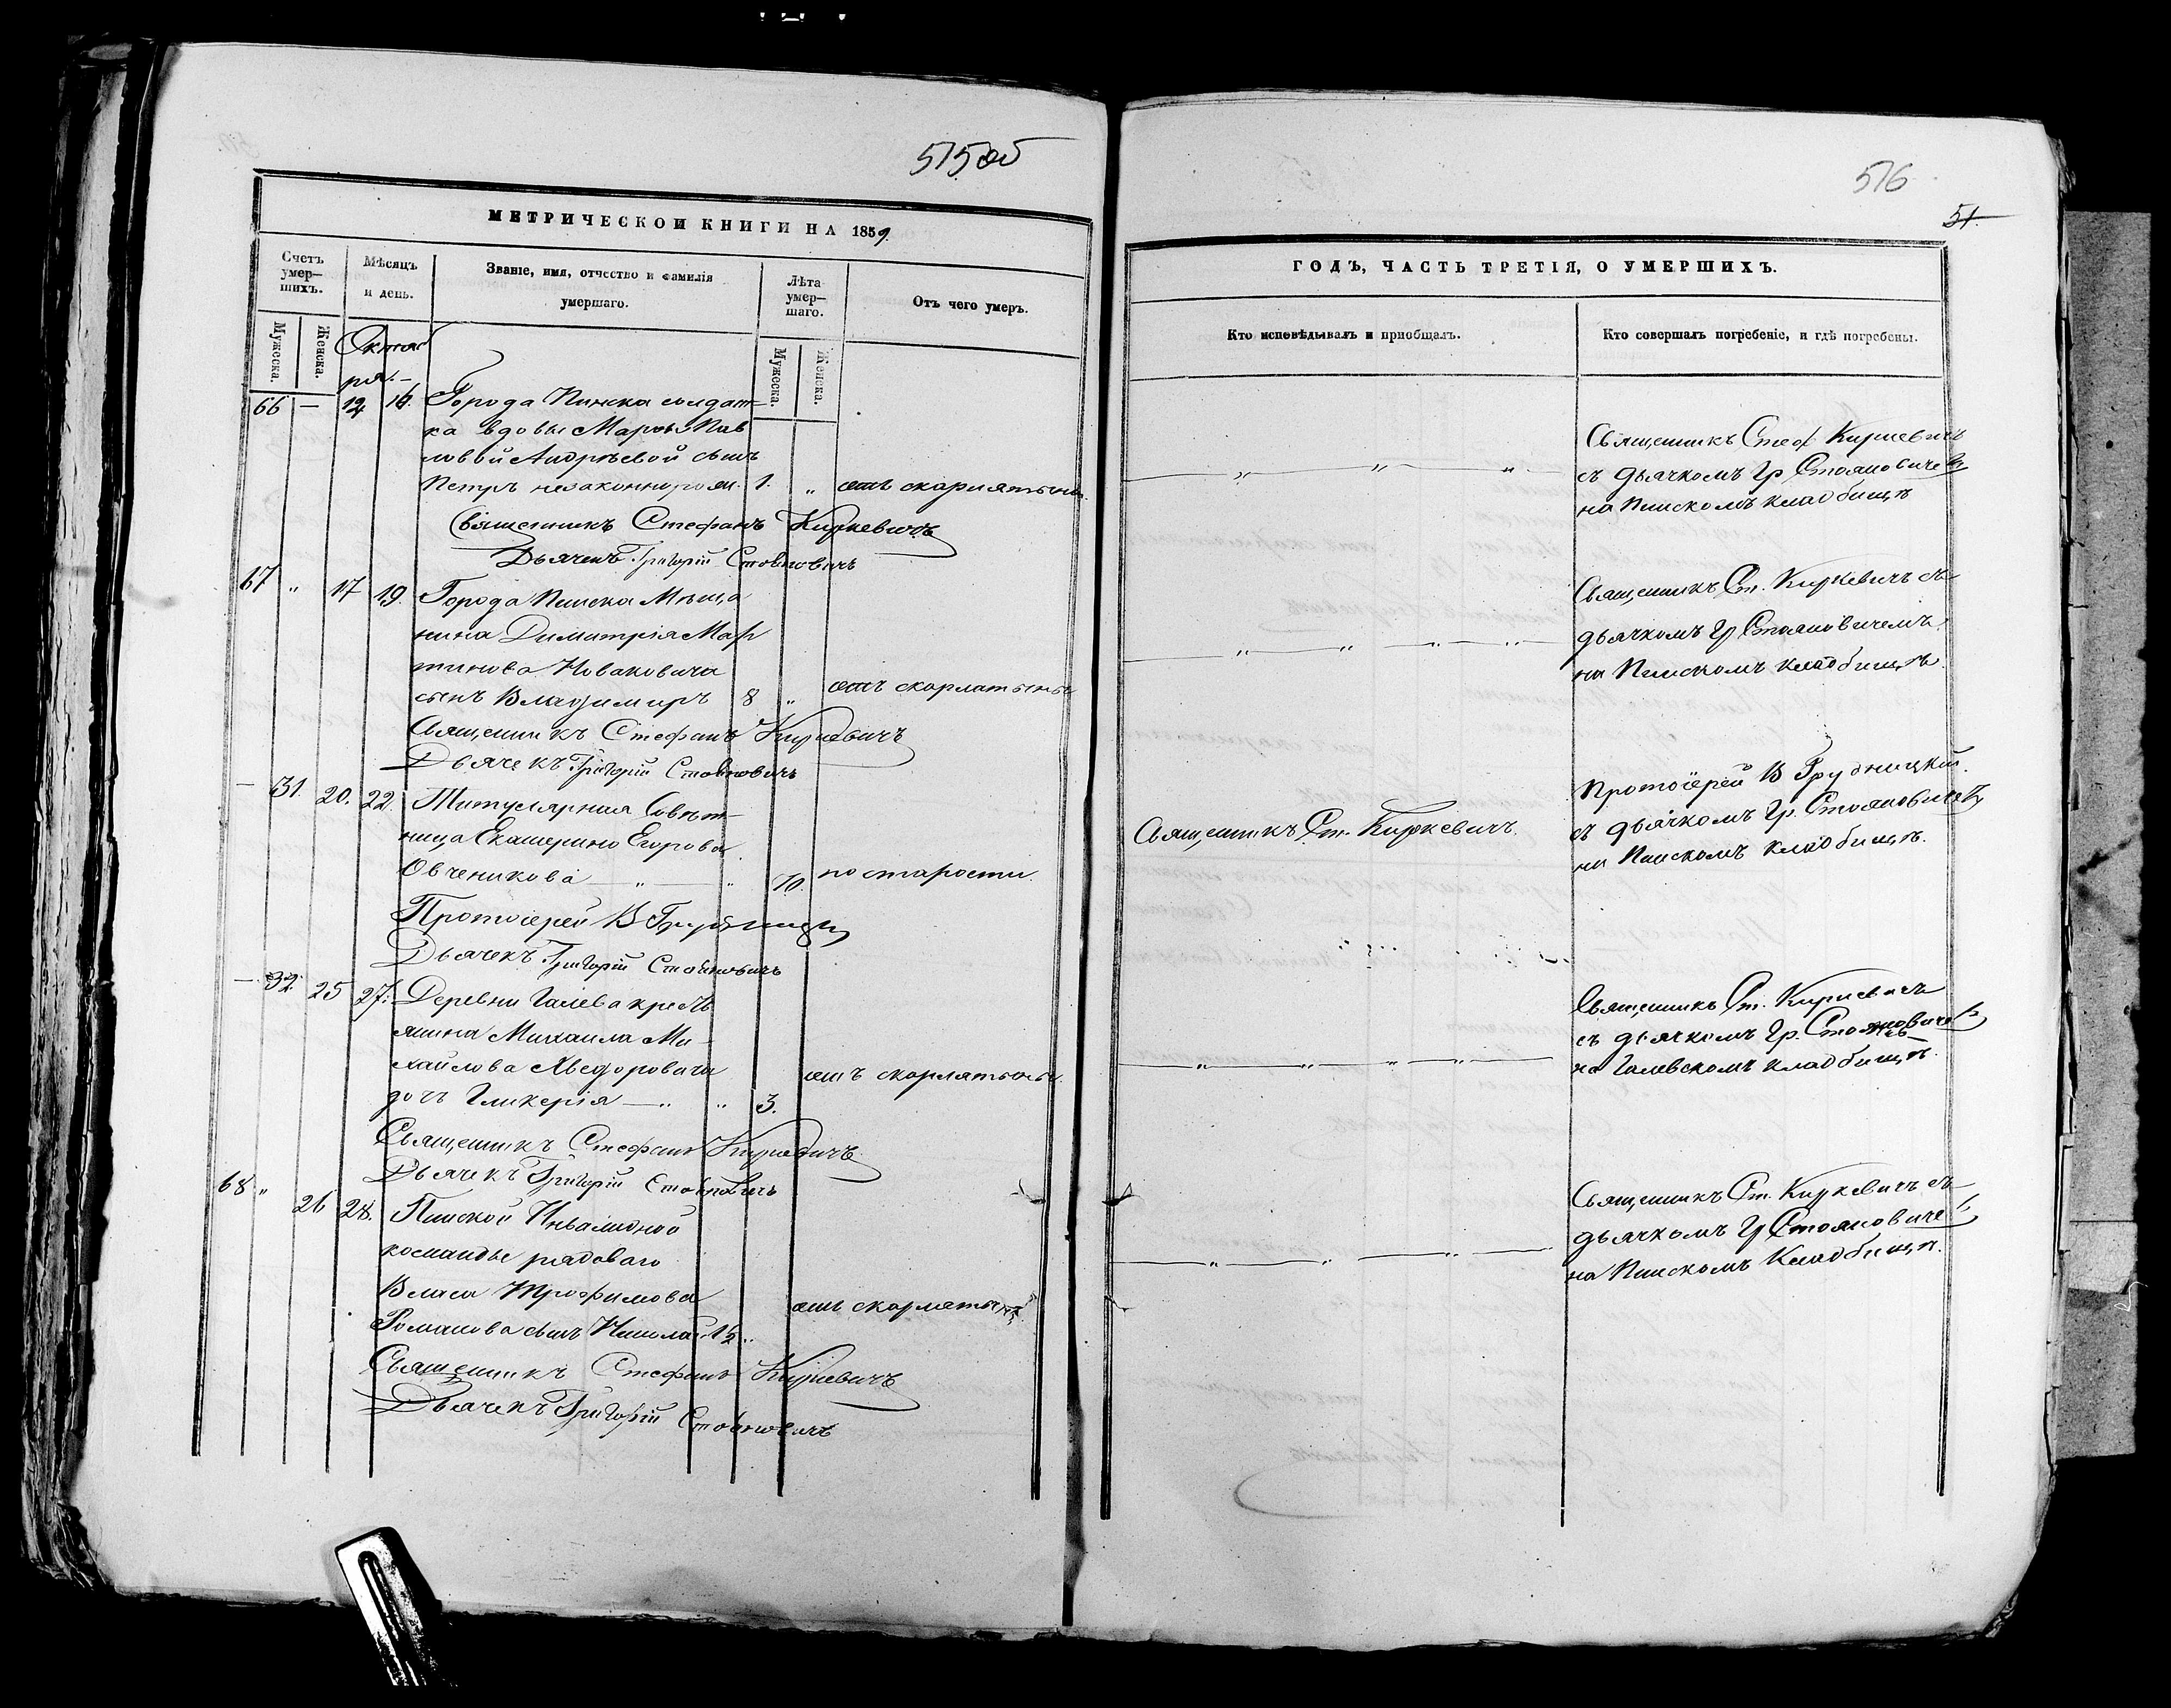 515 об
МЕТРИЧЕСКОЙ КНИГИ НА 1859.
Счетъ умер-
шихъ.
Мѣсяцъ
и день.
Званіе, имя, отчество и фамилія
умершаго.
Лѣта
умер-
шаго.
Отъ чего умеръ.
Мужеска.
Женска.
Октяб
ря.
Мужеска.
Женска.
66 — 14 16. Города Пинска солдат-
ка вдовы Марѳы Пав
ловой Андрѣевой сынъ
Петръ незаконнорож. 1. „ отъ скарлятыны.
Священникъ Стефанъ Киркевичъ
Дьячекъ Григорій Стояновичъ
67 „ 17 19. Города Пинска Мѣща
нина Димитрія Мар
тинова Новаковича
сынъ Владимиръ 8 „ отъ скарлатыны
Священникъ Стефанъ Киркевичъ
Дьячекъ Григорій Стояновичъ
— 31. 20. 22. Титулярная Совѣт-
ница Екатерина Егорова
Овченикова — „ — „ 70. по старости.
Протоіерей В Грудницкій
Дьячекъ Григорій Стояновичъ
— 32. 25 27. Деревни Галева кресть
янина Михаила Ми-
хайлова Хведоровича
дочь Гликерія — „ „ 3. отъ скарлятыны.
Священникъ Стефанъ Киркевичъ
Дьячекъ Григорій Стояновичъ
68 „ 26 28. Пинской Инвалидной
команды рядоваго
Власа Трофимова
Романова сынъ Николай 1½ „ отъ скарлятыны
Священникъ Стефанъ Киркевичъ
Дьячекъ Григорій Стояновичъ
516
51.
ГОДЪ, ЧАСТЬ ТРЕТІЯ, О УМЕРШИХЪ.
Кто исповѣдывалъ и пріобщалъ.
Кто совершалъ погребеніе, и гдѣ погребены.
Священникъ Стеф Киркевичъ
съ дьячкомъ Гр Стояновичемъ
на Пинскомъ кладбищѣ
Священникъ Ст. Киркевичъ съ
дьячкомъ Гр Стояновичемъ
на Пинскомъ кладбищѣ.
Священникъ Ст. Киркевичъ.
Протоіерей В Грудницкій.
съ дьячкомъ Гр. Стояновичемъ
на Пинскомъ кладбищѣ.
Священникъ Ст. Киркевичъ
съ дьячкомъ Гр. Стояновичемъ
на Галевскомъ кладбищѣ.
Священникъ Ст. Киркевичъ съ
дьячкомъ Гр Стояновичемъ
на Пинскомъ Кладбищѣ.